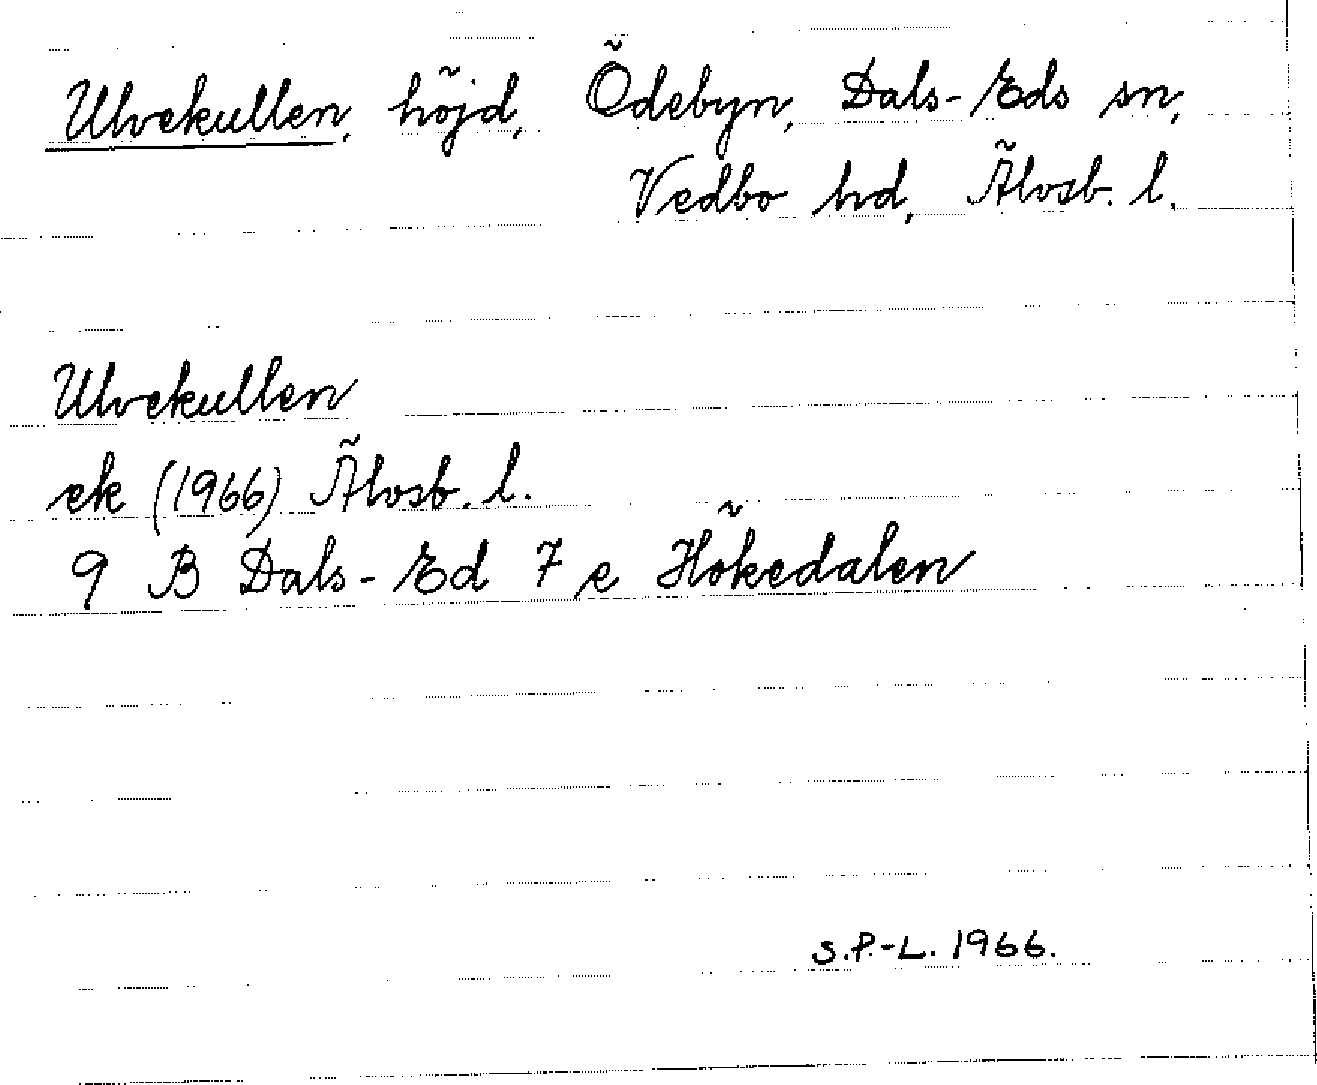 Ulvekullen, höjd, Ödebyn, Dals-Eds sn,
Vedbo hd, Älvsb. l.
Ulvekullen
ek (1966) Älvsb. l.
9 B Dals-Ed 7 e Hökedalen
S.P.-L. 1966.